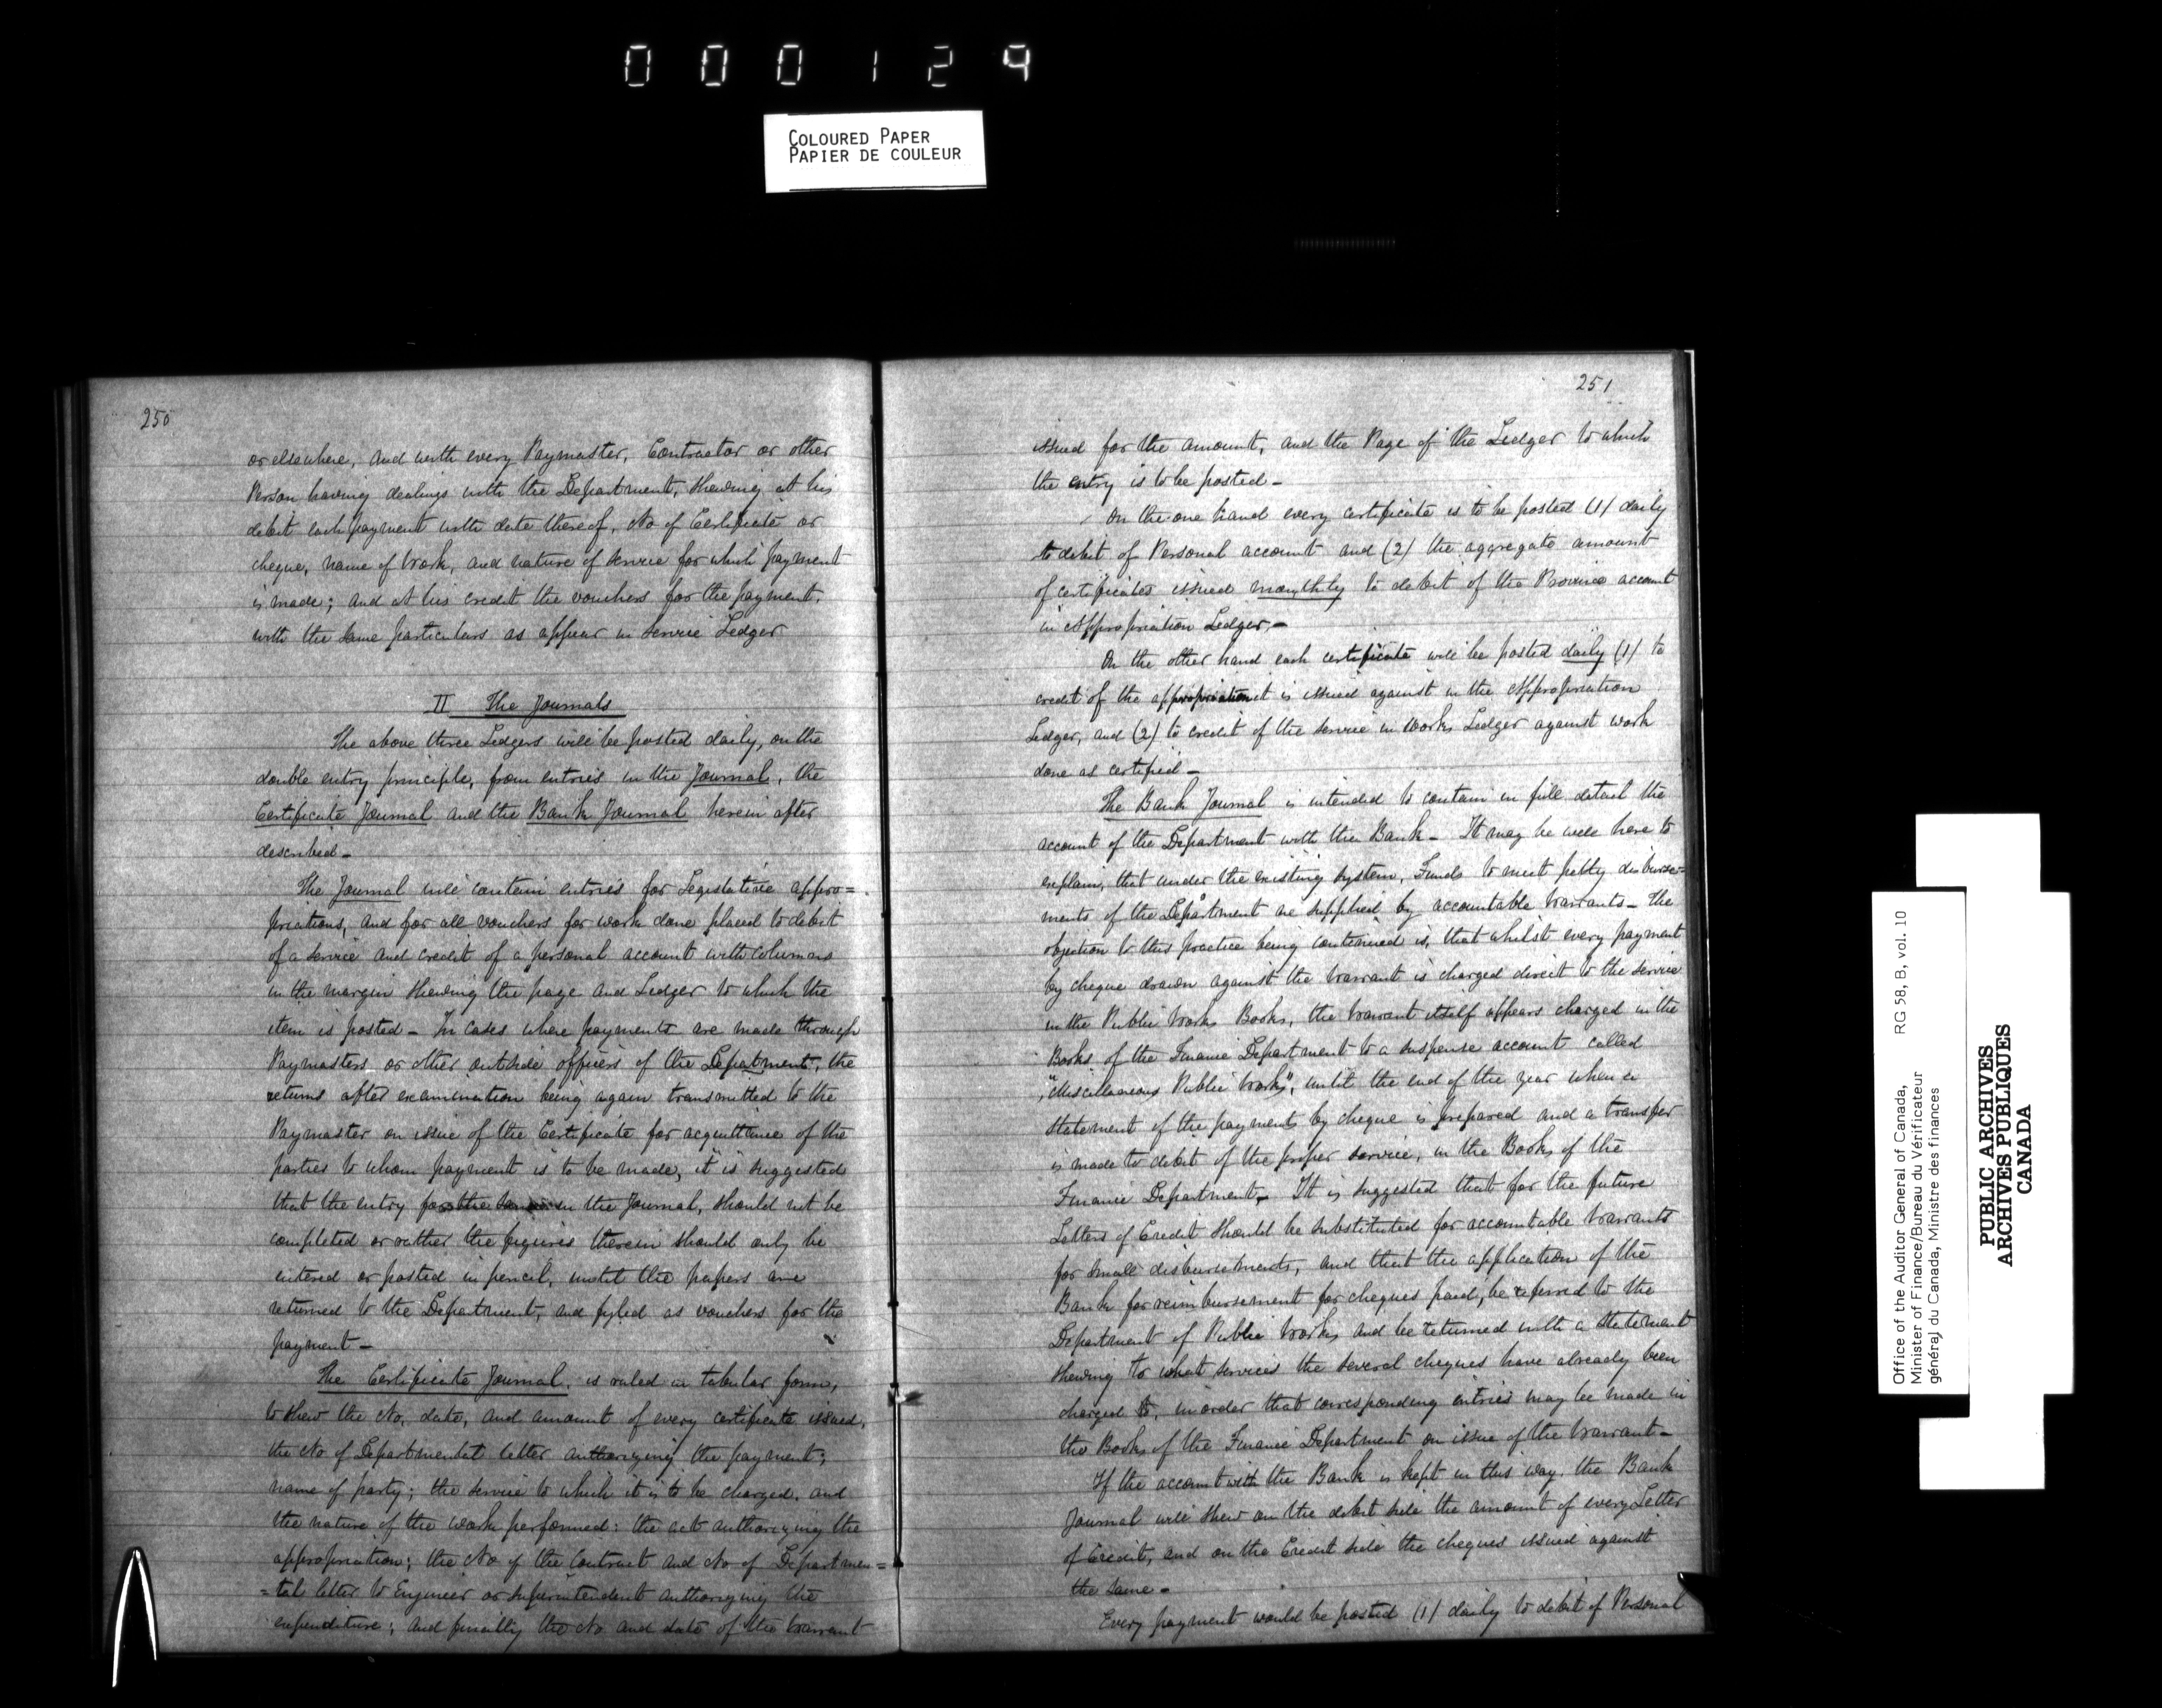 000129
COLOURED PAPER
PAPIER DE COULEUR
250
or elsewhere, and with every Paymaster, Contractor or other
Person having dealings with the Department, shewing at his
debit each payment with date thereof, No of Certificate or
cheque, name of Work, and nature of service for which payment
is made; and at his credit the vouchers for the payment,
with the same particulars as appear in Service Ledger
II The Journals
The above three Ledgers will be posted daily, on the
double entry principle, from entries in the Journal, the
Certificate Journal and the Bank Journal herein after
described -
The Journal will contain entries for Legislative appro=
priations, and for all vouchers for work done placed to debit
of a service and credit of a personal account with columns
in the margin shewing the page and Ledger to which the
item is posted - In cases where payments are made through
Paymasters or other outside officers of the Department, the
returns after examination being again transmitted to the
Paymaster on issue of the Certificate for acquittance of the
parties to whom payment is to be made, it is suggested
that the entry for the same in the Journal, should not be
completed or rather the figures therein should only be
entered or posted in pencil, until the papers are
returned to the Department, and fyled as vouchers for the
payment -
The Certificate Journal, is ruled in tabular form,
to shew the No, date, and amount of every certificate issued,
the No of Departmental letter authorizing the payment;
name of party; the service to which it is to be charged, and
the nature of the work performed: the act authorizing the
appropriation; the No of the Contract and No of Departmen=
=tal letter to Engineer or Superintendent authorizing the
expenditure; and finally the No and date of the Warrant
251
issued for the amount, and the Page of the Ledger to which
the entry is to be posted -
On the one hand every certificate is to be posted (1) daily
to debit of Personal account and (2) the aggregate amount
of certificates issued monthly to debit of the Province account
in Appropriation Ledger, -
On the other hand each certificate will be posted daily (1) to
credit of the appropriation it is issued against in the Appropriation
Ledger, and (2) to credit of the service in Works Ledger against work
done as certified -
The Bank Journal is intended to contain in full detail the
account of the Department with the Bank - It may be well here to
explain, that under the existing system, Funds to meet petty disburse=
ments of the Department are supplied by accountable Warrants - The
objection to this practice being continued is, that whilst every payment
by cheque drawn against the Warrant is charged direct to the service
in the Public Works Books, the Warrant itself appears charged in the
Books of the Finance Department to a suspense account called
"Miscellaneous Public Works", until the end of the year when a
statement of the payments by cheque is prepared and a transfer
is made to debit of the proper service, in the Books of the
Finance Department - It is suggested that for the future
Letters of Credit should be substituted for accountable Warrants
for small disbursements, and that the application of the
Bank for reimbursement for cheques paid, be referred to the
Department of Public Works and be returned with a statement
shewing to what services the several cheques have already been
charged to, in order that corresponding entries may be made in
the Books of the Finance Department on issue of the Warrant -
If the account with the Bank is kept in this way, the Bank
Journal will shew on the debit side the amount of every Letter
of Credit, and on the Credit side the cheques issued against
the same -
Every payment would be posted (1) daily to debit of Personal
Office of the Auditor General of Canada, RG 58, B, vol. 10
Minister of Finance/Bureau du Vérificateur
général du Canada, Ministre des finances
PUBLIC ARCHIVES
ARCHIVES PUBLIQUES
CANADA